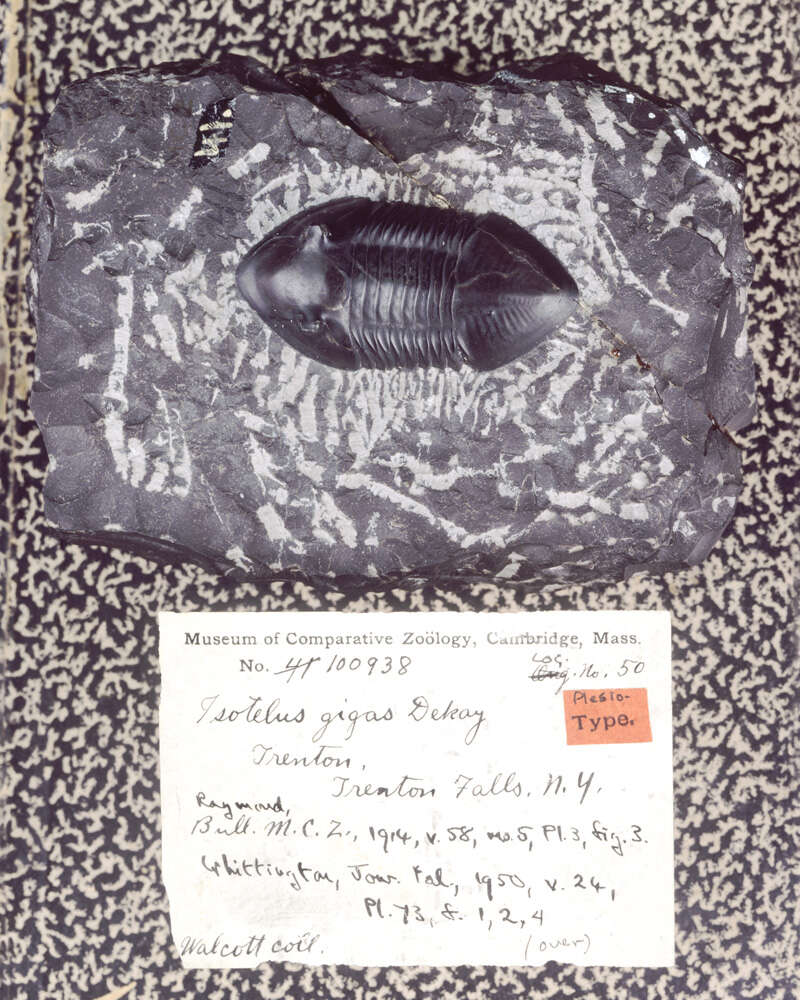 Museum of Comparative Zoölogy, Cambridge, Mass.
No. 100938
Loc. Orig. No. 50
Plesio-
Type.
Isotelus gigas Dekay
Trenton,
Trenton Falls, N.Y.
Raymond,
Bull. M.C.Z., 1914, v. 58, no. 5, Pl. 3, fig. 3.
Whittington, Jour. Pal., 1950, v. 24,
Pl. 73, f. 1, 2, 4
(over)
Walcott coll.